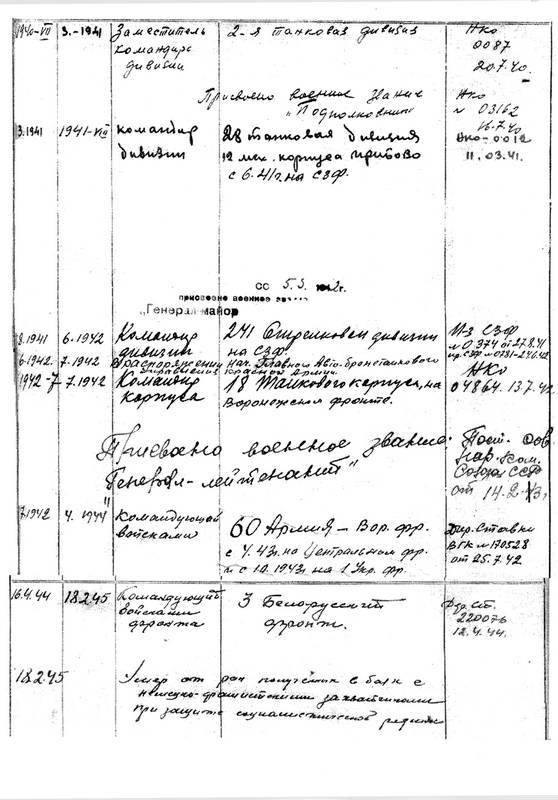 1940-VII 3.-1941 Заместитель 2-я танковая дивизия НКО
командира 0087
дивизии 20.7.40.
Присвоено военное звание НКО
"Подполковник" № 03162
16.7.40
3.1941 1941-VIII командир 28 танковая дивизия НКО-0012
дивизии 12 мех. корпуса прибово 11.03.41.
с 6.41г. на СЗФ.
сс 5.5. 1942г.
присвоено военное звание
"Генерал-майор
8.1941 6.1942 Командир 241 Стрелковой дивизии Из СЗФ
дивизии на СЗФ. № 0374 от 27.8.41
6.1942. 7.1942 В распоряжении нач. Главного Авто-бронетанкового
управления красной Армии НКО
1942-7 7.1942 Командир 18 Танкового корпуса, на 04864. 13.7.42
корпуса Воронежском фронте.
Присвоено военное звание Пост. Сов.
"Генерал-лейтенант" Нар. Ком.
Союза ССР
от 14.2.43г.
7.1942 4.1944 Командующий 60 Армия – Вор. фр. Дир. Ставки
войсками с 4.43г. на Центральном фр. ВГК № 170528
и с 10.1943г. на 1 Укр. фр. от 25.7.42
16.4.44 18.2.45 Командующий 3 Белорусский Дир. Ст.
войсками фронт. 220076
фронта 12.4.44.
18.2.45 Умер от ран полученных в боях с
немецко-фашистскими захватчиками
при защите социалистической родины